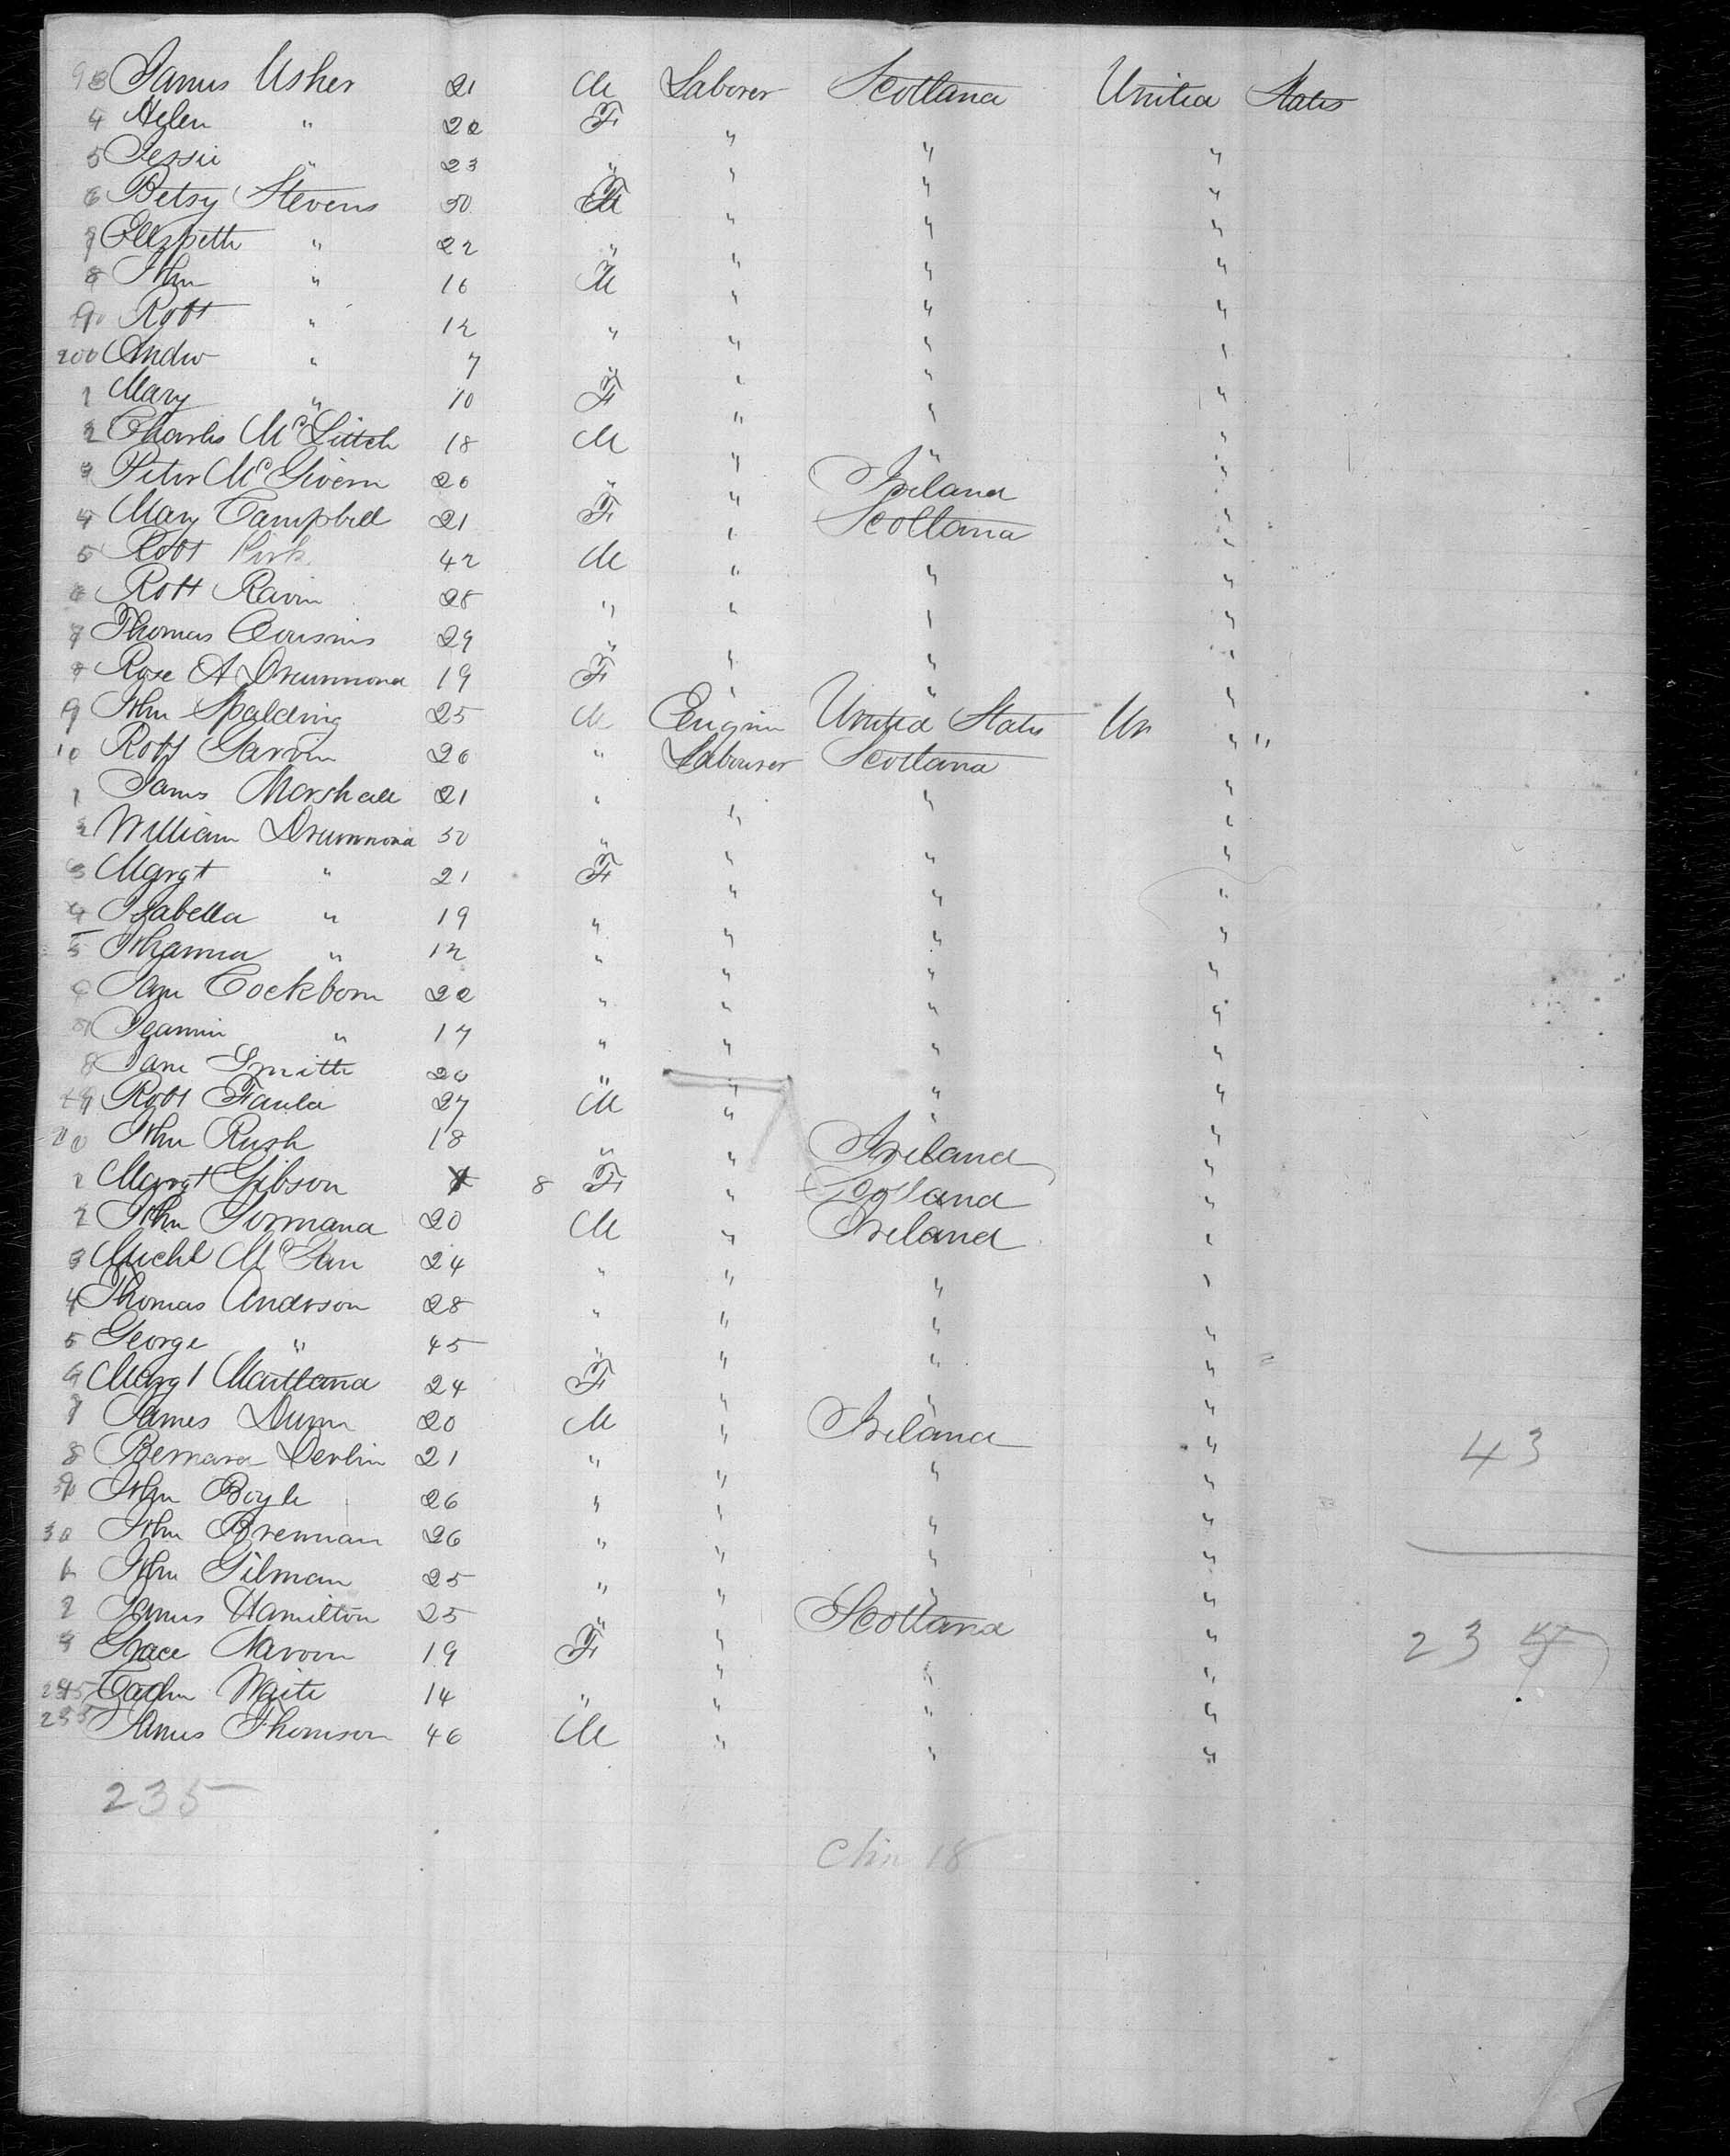 93 James Usher 21 M Laborer Scotland United States
4 Helen " 20 F " " "
5 Jessie " 23 " " " "
6 Betsy Stevens 50 F " " "
7 Elizpeth " 22 " " " "
8 John " 16 M " " "
9 Robt " 12 " " " "
200 Andw " 7 " " " "
1 Mary " 10 F " " "
2 Charles McLittch 18 M " " "
3 Peter McGivern 20 " " Ireland "
4 Mary Campbell 21 F " Scotland "
5 Robt Kirk 42 M " " "
6 Robt 28 " " " "
7 Thomas Cousins 29 " " " "
8 Rose A Drummond 19 F " " "
9 John Spalding 25 M Engin United States Un " "
10 Robt Garvin 26 " Labourer Scotland
1 James Marshall 21 " " " "
2 William Drummond 50 " " " "
3 Margt " 21 F " " "
4 Isabella " 19 " " " "
5 Johanna " 12 " " " "
6 Jane Cockborn 20 " " " "
7 Jeannie " 17 " " " "
8 Jane Smith 20 " " " "
19 Robt Faula 27 M " " "
20 John Rush 18 " " Ireland "
1 Margt Gibson 8 F " "
2 John Gormand 20 M " Ireland "
3 Michl 24 " " " "
4 Thomas Anderson 28 " " " "
5 George " 45 " " " "
6 Margt Maitland 24 F " " "
7 James Dunn 20 M " Ireland "
8 Bernard Devlin 21 " " " " 43
9 John Boyle 26 " " " "
30 John Brennan 26 " " " "
1 John Gilman 25 " " " "
2 James Hamilton 25 " " Scotland "
3 Grace 19 F " " " 23
Waite 14 " " " "
235 James Thomson 46 M " " "
235
18